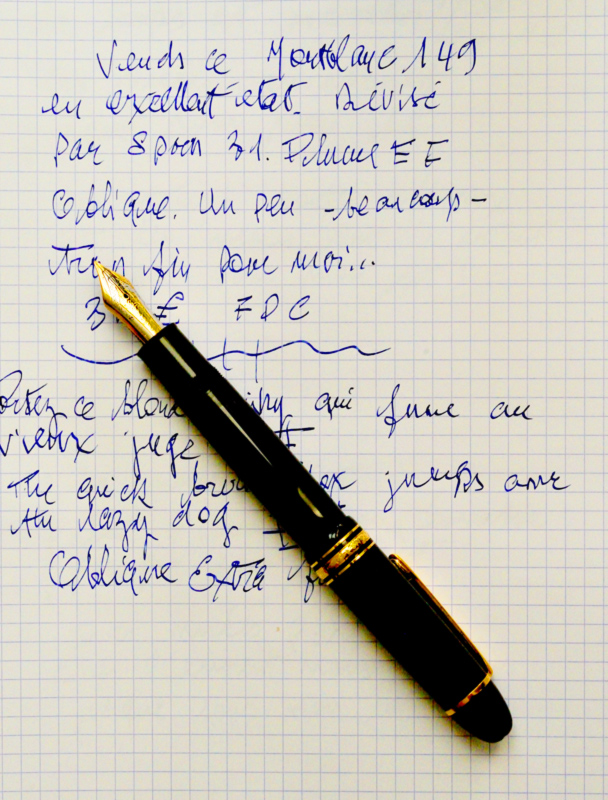 Vends ce Montblanc 149
en excellent état. Révisé
par 31. Plume EF
Oblique. Un peu - beaucoup -
trop fin pour moi...
€ FDC
Portez ce qui fume au
vieux juge
The quick brown fox jumps over
the lazy dog
Oblique Extra